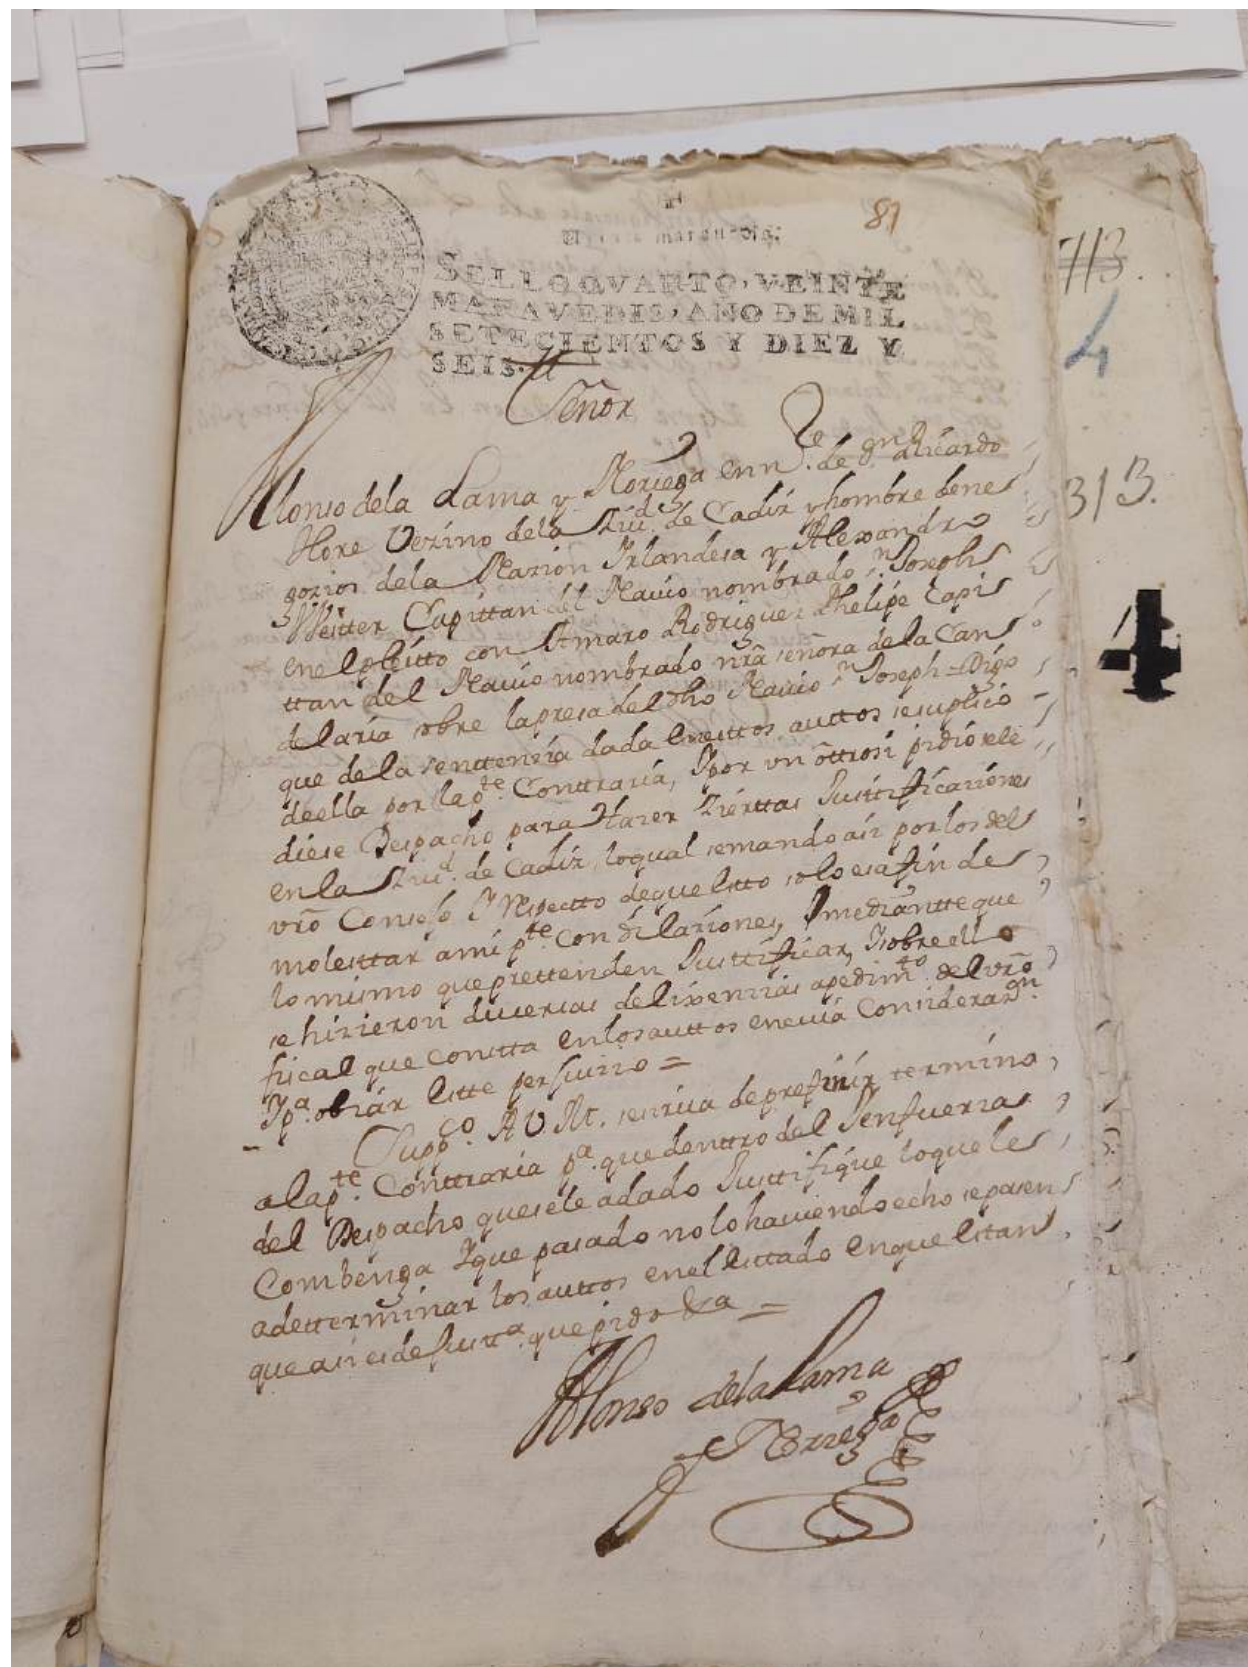 81
SELLO QVARTO, VEINTE
MARAVEDIS, AÑO DE MIL
SETECIENTOS Y DIEZ Y
SEIS.
713.
4
313.
4
Señor
Alonso dela Lama y Noriega en nre. de Dn Ricardo
Hore Vezino dela Ziud. de Cadiz y hombre de ne
gozios dela Nazion Irlandesa y Alexandro
Weitter Capittan del Nauio nombrado Sn. Joseph
en el pleitto con Amaro Rodriguez Phelipe Capi
ttan del Nauio nombrado nrã señora dela Can
delaria sobre la presa del dho Nauio Sn Joseph = Digo
que dela senttenzia dada en esttos auttos se suplico
de ella por la pte. Conttraria, Y por un õttrosi pidio se le
diese Despacho para Hazer Zierttas Justtificaziones
en la Ziud. de Cadiz, lo qual se mando asi por los del
vrõ Consejo Y Respectto de que estto solo es a fin de
molesttar a mi pte. con dilaziones, Y mediantte que
lo mismo que prettenden Justtificar, Y sobre ello
se hizieron diuersas delixenzias a pedimto. del vrõ
fiscal que constta en los auttos en cuia Considerazon.
Ypa. obiar estte perjuizio =
Suppco. A V. M. se sirua de prefinir termino
a la pte. Conttraria pa. que denttro del Senfuerzas
del Despacho que se le a dado Justtifique lo que le
Combenga Y que pasado no lo hauiendo echo se pasen
a determinar los auttos en el esttado en que estan
que asi es de Justta. que pido &a =
Alonso dela Lama
y Noriega